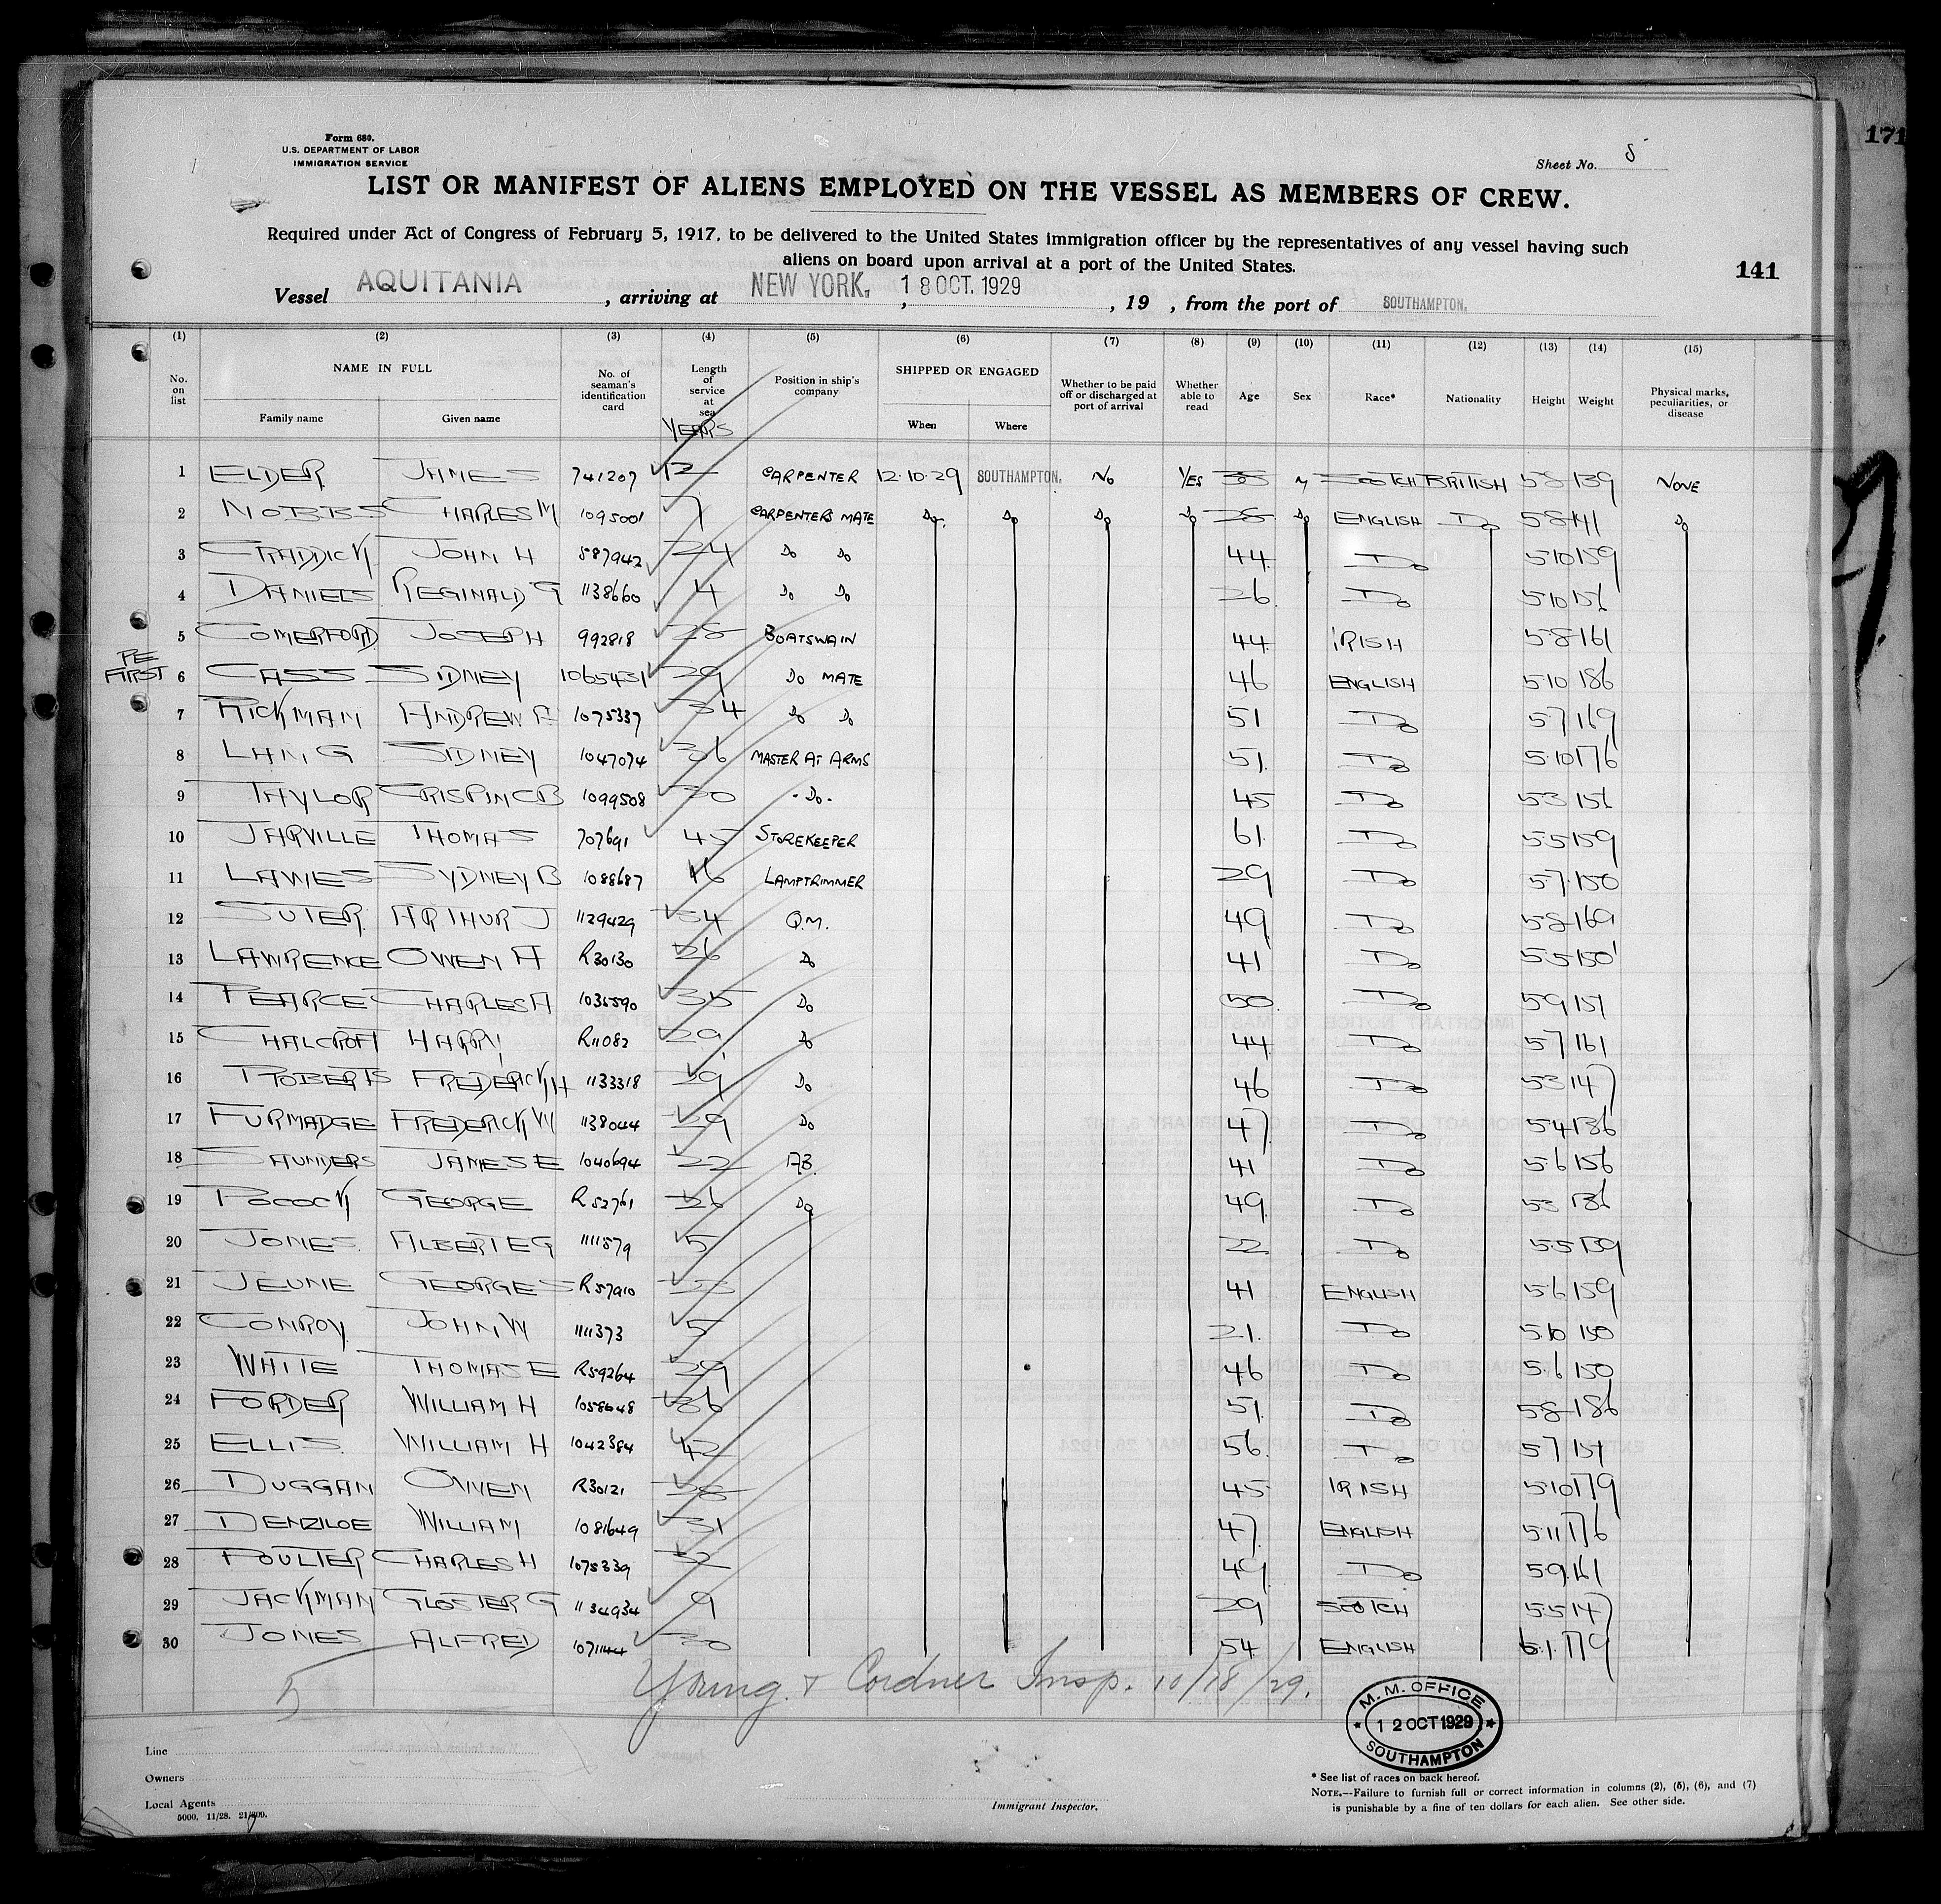 171
Form 680.
U.S. DEPARTMENT OF LABOR
IMMIGRATION SERVICE
Sheet No.
LIST OR MANIFEST OF ALIENS EMPLOYED ON THE VESSEL AS MEMBERS OF CREW.
Required under Act of Congress of February 5, 1917, to be delivered to the United States immigration officer by the representatives of any vessel having such
aliens on board upon arrival at a port of the United States.
141
Vessel AQUITANIA, arriving at NEW YORK., 18 OCT. 1929, 19 , from the port of SOUTHAMPTON.
(1) (2) (3) (4) (5) (6) (7) (8) (9) (10) (11) (12) (13) (14) (15)
No. on list NAME IN FULL Family name Given name No. of seaman's identification card Length of service at sea YEARS Position in ship's company SHIPPED OR ENGAGED When Where Whether to be paid off or discharged at port of arrival Whether able to read Age Sex Race* Nationality Height Weight Physical marks, peculiarities, or disease
1 ELDER JAMES 741207 12 CARPENTER 12.10.29 SOUTHAMPTON. NO YES M SCOTCH BRITISH 5.8 139 NONE
2 NOBBS CHARLES M 1095001 7 CARPENTERS MATE Do Do Do Do Do ENGLISH Do 5.8 141 Do
3 CRADDICK JOHN H 587942 24 Do Do 44 Do 5.10 159
4 DANIELS REGINALD G 1138660 4 Do Do 26 Do 5.10
5 COMERFORD JOSEPH 992818 BOATSWAIN 44 IRISH 5.8 161
PE
FIRST 6 CASS SIDNEY 1065431 29 Do MATE 46 ENGLISH 5.10 186
7 RICKMAN ANDREW 1075337 34 Do Do 51 Do 5.7 169
8 LANG SIDNEY 1047074 36 MASTER AT ARMS 51 Do 5.10 176
9 TAYLOR CRISPIN C B 1099508 30 -Do- 45 Do 5.3 156
10 JARVILLE THOMAS 707691 45 STOREKEEPER 61 Do 5.5 159
11 LAWES SYDNEY B 1088687 16 LAMPTRIMMER 29 Do 5.7 150
12 SUTER ARTHUR J 1129429 34 Q.M. 49 Do 5.8 169
13 LAWRENCE OWEN A R30130 26 Do 41 Do 5.5 150
14 PEARCE CHARLES A 1036590 35 Do 50 Do 5.9 151
15 CHALCROFT HARRY R11082 29 Do 44 Do 5.7 161
16 ROBERTS FREDERICK H 1133318 29 Do 46 Do 5.3 147
17 FURMADGE FREDERICK W 1138044 29 Do 47 Do 5.4 136
18 SAUNDERS JAMES E 1040694 22 AB. 41 Do 5.6 156
19 POCOCK GEORGE R52761 26 Do 49 Do 5.3 136
20 JONES ALBERT E G 1111579 5 22 Do 5.5 139
21 JEUNE GEORGE S R57910 41 ENGLISH 5.6 159
22 CONROY JOHN W 1111373 5 21 Do 5.10 150
23 WHITE THOMAS E R59264 29 46 Do 5.6 150
24 FORDER WILLIAM H 1058648 36 51 Do 5.8 186
25 ELLIS WILLIAM H 1042384 42 56 Do 5.7
26 DUGGAN OWEN R30121 45 IRISH 5.10 179
27 DENZILOE WILLIAM 1081649 31 47 ENGLISH 5.11 176
28 POULTER CHARLES H 1075339 32 49 Do 5.9 161
29 JACKMAN GLOSTER G 1134934 9 29 SCOTCH 5.5 147
30 JONES ALFRED 1071144 30 54 ENGLISH 6.1 179
5
Young & Cordner Insp. 10/18/29.
M. M. OFFICE
12 OCT 1929
SOUTHAMPTON
Line
Owners
Local Agents
5000. 11/28.
Immigrant Inspector.
* See list of races on back hereof.
NOTE.—Failure to furnish full or correct information in columns (2), (5), (6), and (7)
is punishable by a fine of ten dollars for each alien. See other side.